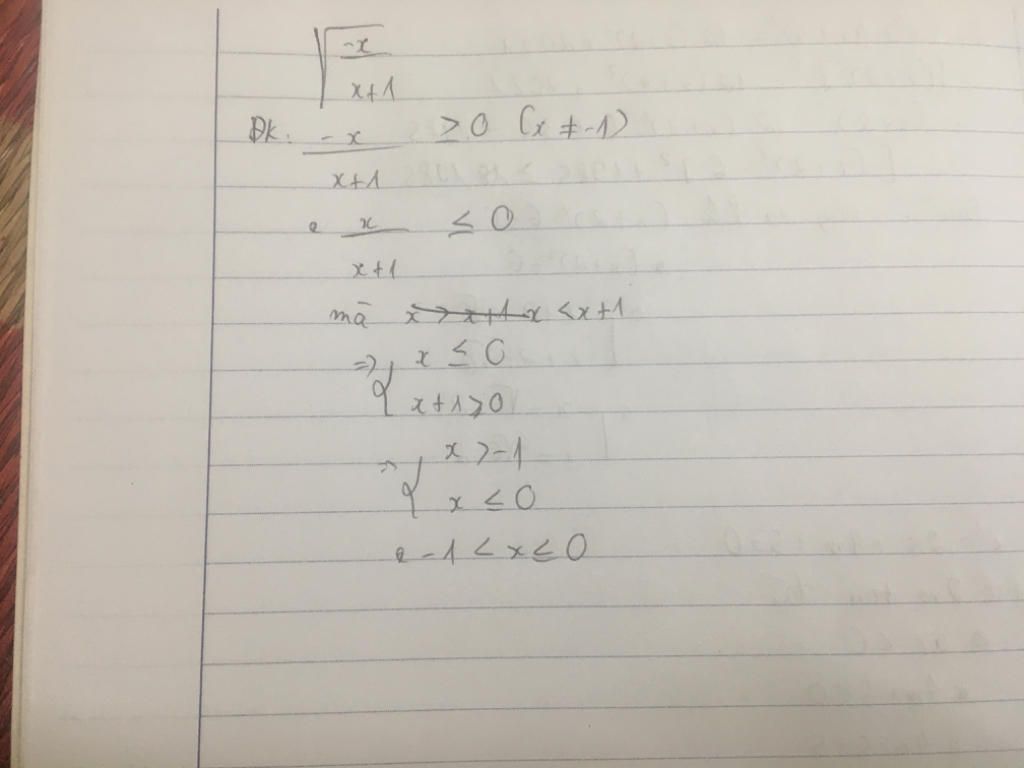 √(-x/(x+1))
ĐK: -x/(x+1) ≥ 0 (x ≠ -1)
x/(x+1) ≤ 0
mà x > x+1 x < x+1
=> { x ≤ 0
x+1 > 0
=> { x > -1
x ≤ 0
-1 < x ≤ 0